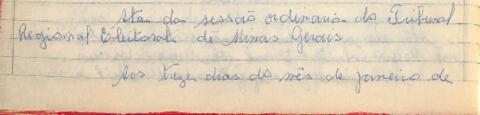 Ata da sessão ordinaria do Tribunal
Regional Eleitoral de Minas Gerais
Aos treze dias do mês de janeiro de